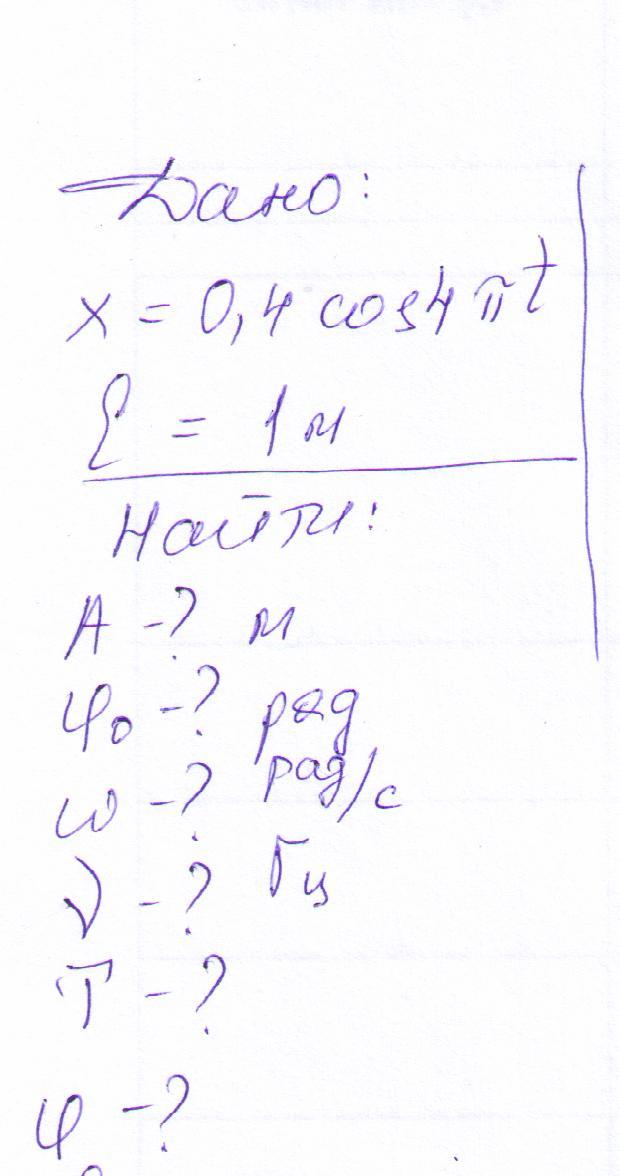 Дано:
x = 0,4 cos4πt
ℓ = 1 м
Найти:
A -? м
φ₀ -? рад
ω -? рад/с
ν -? Гц
T -?
φ -?